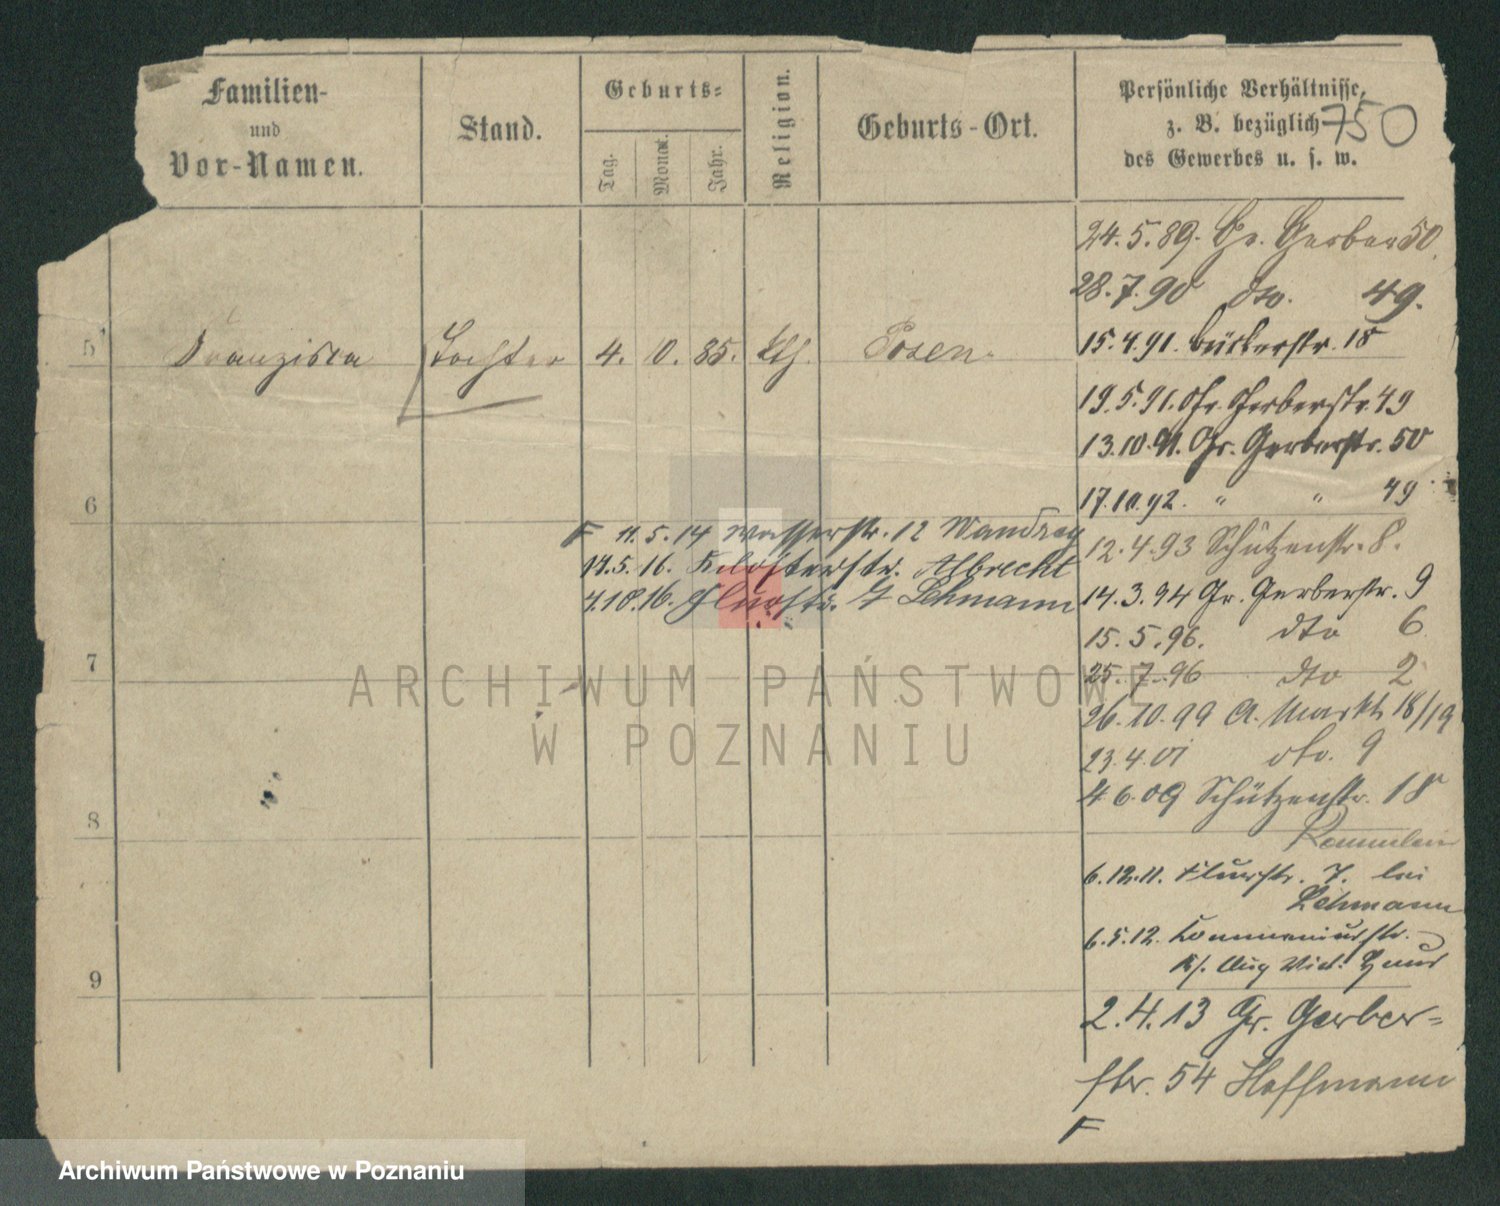 Familien-
und
Vor-Namen.
Stand.
Geburts-
Tag.
Monat.
Jahr.
Religion.
Geburts-Ort.
Persönliche Verhältnisse,
z. B. bezüglich
des Gewerbes u. s. w.
750
24.5.89. Gr. Gerber 50.
28.7.90 dto. 49.
5 Franziska Tochter 4. 85. Kth. Posen.
15.4.91. Büttelstr. 18
19.5.91. Gr. Gerberstr. 49
13.10.91. Gr. Gerberstr. 50
6
17.10.92. " " 49
F 11.5.14 Wasserstr. 12
12.4.93 Schützenstr. 8.
17.5.16. Klosterstr. Albrecht
4.10.16. Flurstr. 7 Lehmann
14.3.94 Gr. Gerberstr. 9
15.5.96. dto 6
7
25.7.96 dto 2
ARCHIWUM PAŃSTWOWE
W POZNANIU
26.10.99 A. Markt 18/19
23.4.01 dto. 9
4.6.09 Schützenstr. 18
8
6.12.11. Flurstr. 7. bei
Lehmann
6.5.12.
9
2.4.13 Gr. Gerber-
str. 54 Hoffmann
F
Archiwum Państwowe w Poznaniu